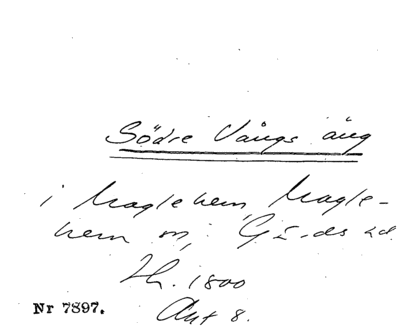 Södre Vångs äng
i Maglehem, Magle-
hem sn, Gärds hd.
Zh. 1800
Akt 8.
Nr 7897.